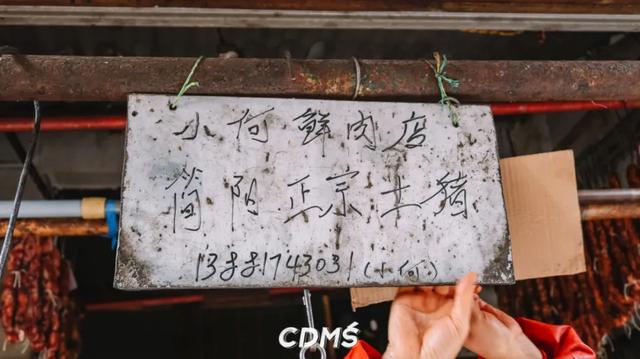 小何鲜肉店
简阳正宗土猪
13881743031(小何)
CDMS